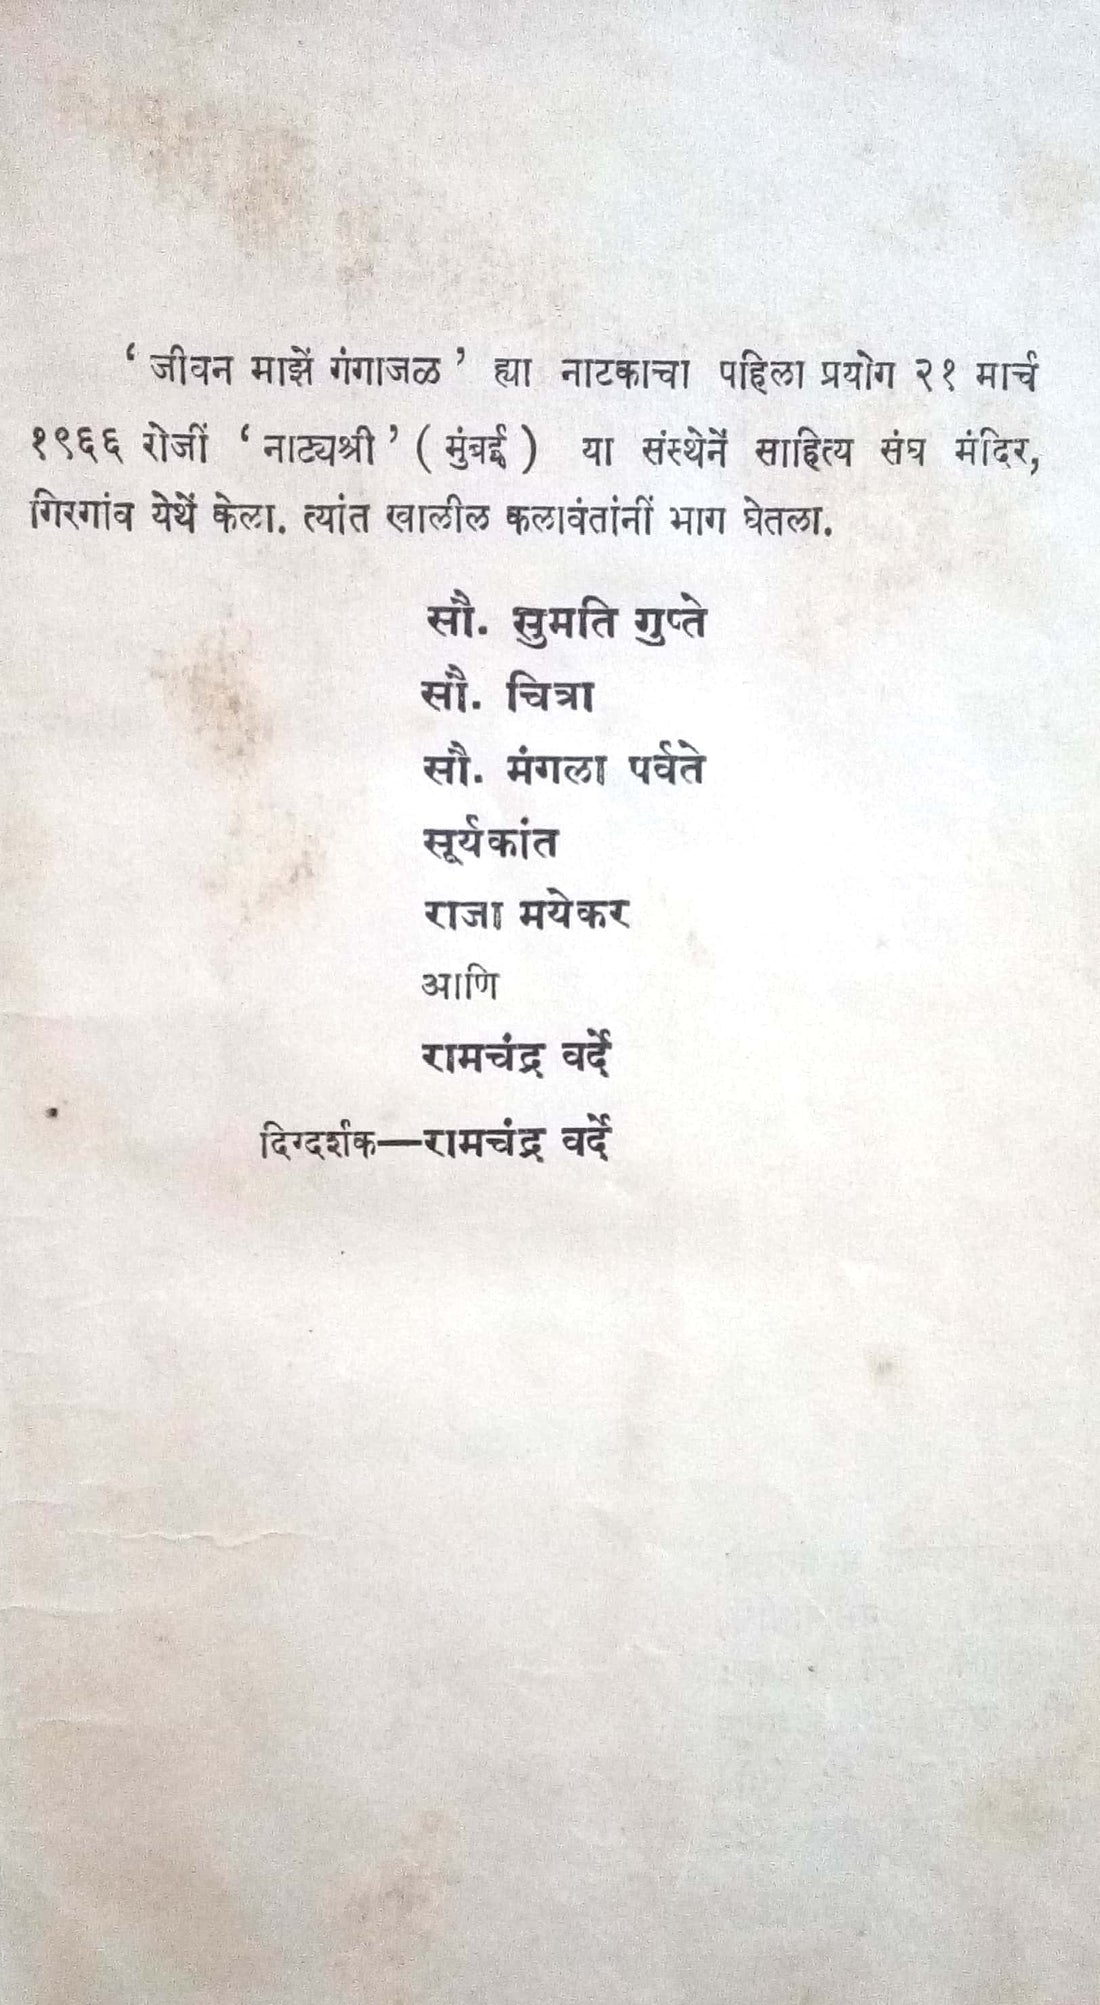 ‘ जीवन माझें गंगाजळ ’ ह्या नाटकाचा पहिला प्रयोग २१ मार्च
१९६६ रोजीं ‘ नाट्यश्री ’ ( मुंबई ) या संस्थेनें साहित्य संघ मंदिर,
गिरगांव येथें केला. त्यांत खालील कलावंतांनीं भाग घेतला.
सौ. सुमति गुप्ते
सौ. चित्रा
सौ. मंगला पर्वते
सूर्यकांत
राजा मयेकर
आणि
रामचंद्र वर्दे
दिग्दर्शक—रामचंद्र वर्दे